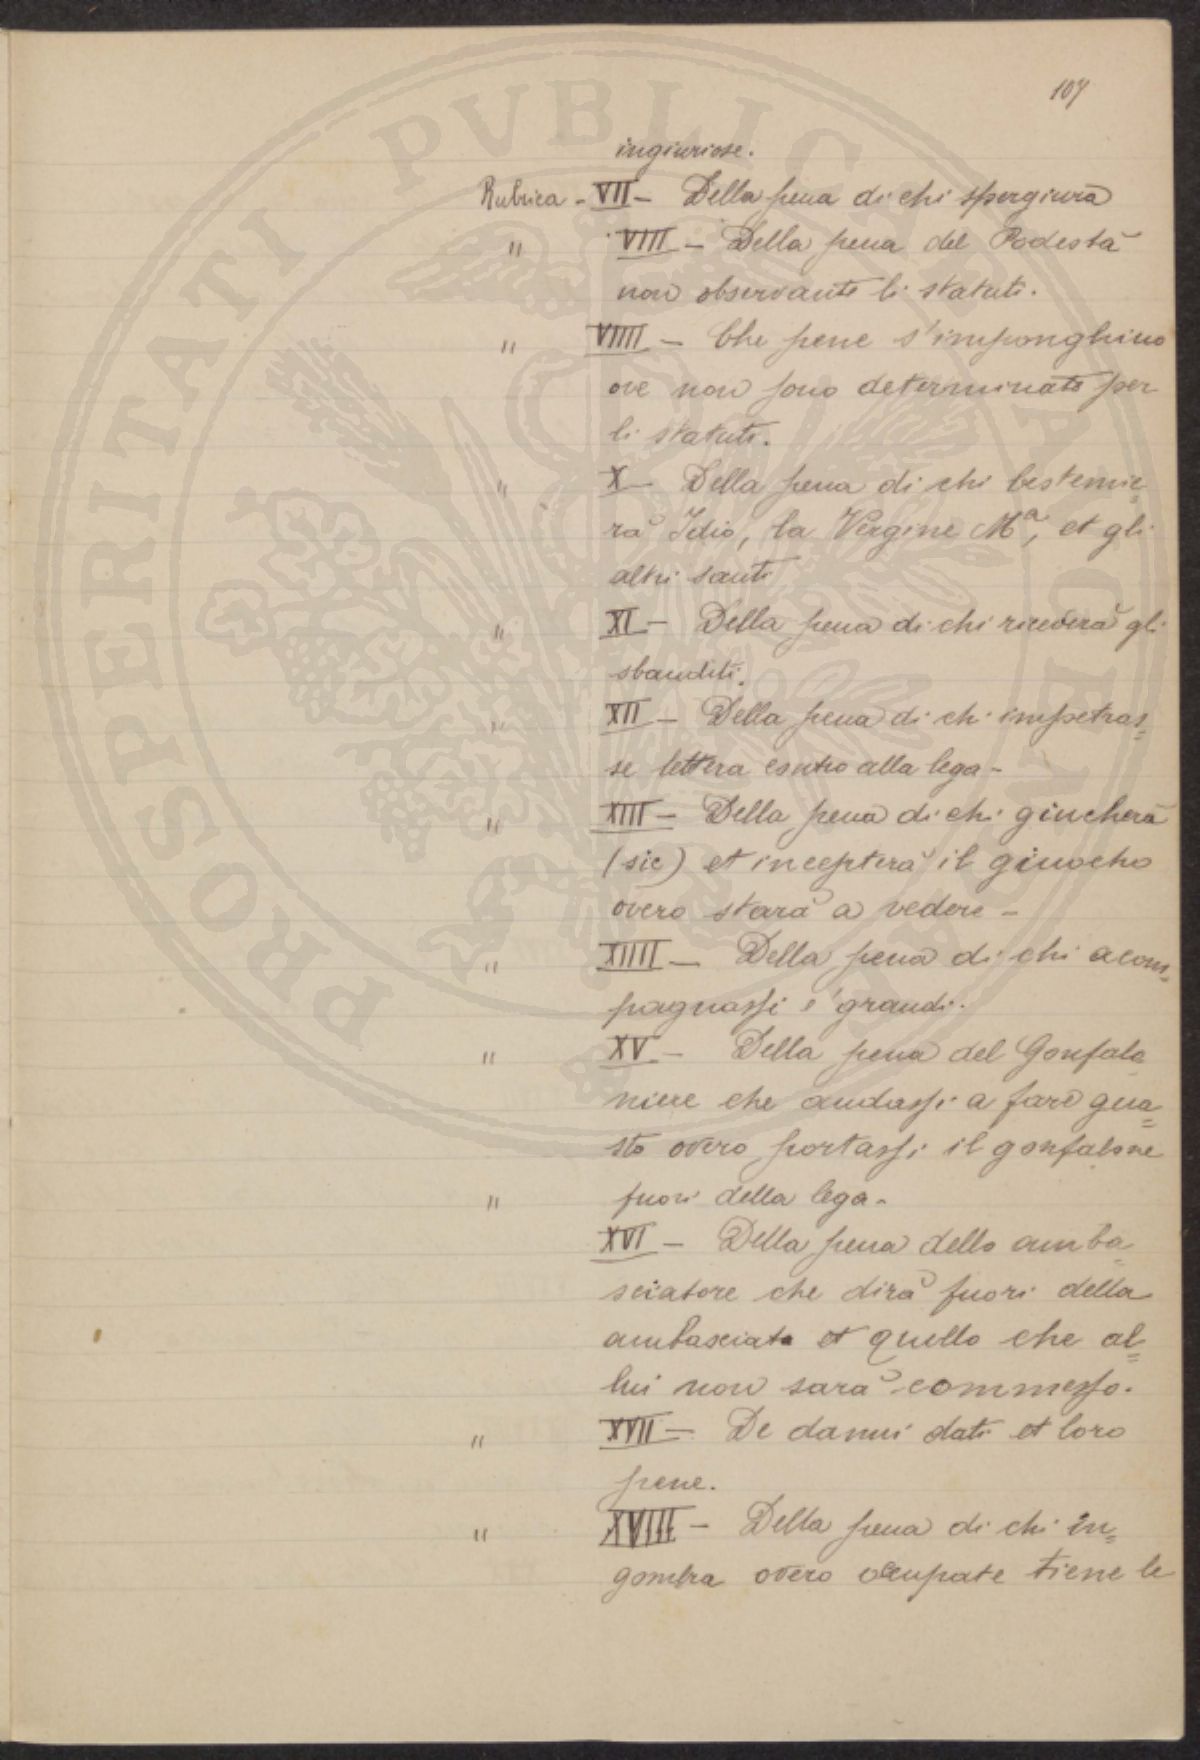 107
ingiuriose.
Rubrica - VII - Della pena di chi spergiura
" VIII - Della pena del Podestà
non observante li statuti.
" VIIII - Che pene s'imponghino
ove non sono determinate per
li statuti.
" X - Della pena di chi bestemie=
rà Idio, la Vergine Mª, et gli
altri santi
" XI - Della pena di chi riceverà gli
sbanditi.
" XII - Della pena di chi impetras=
se lettera contro alla lega -
" XIII - Della pena di chi giucherà
(sic) et incepterà il giuocho
overo starà a vedere -
" XIIII - Della pena di chi acom=
pagnassi e' grandi.
" XV - Della pena del Gonfalo=
niere che andassi a fare gua=
sto overo portassi il gonfalone
fuori della lega -
" XVI - Della pena dello amba=
sciatore che dirà fuori della
ambasciata et quello che al=
lui non sarà commesso.
" XVII - De danni dati et loro
pene.
" XVIII - Della pena di chi in=
gombra overo ocupate tiene le
PROSPERITATI PVBLICAE